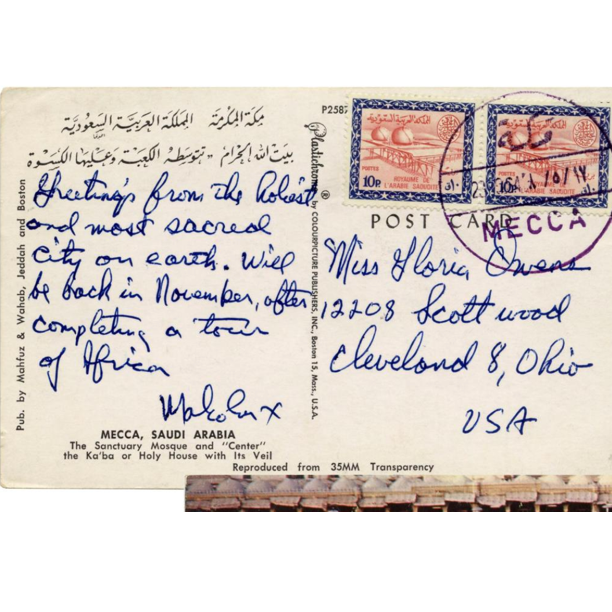 مكة المكرمة المملكة العربية السعودية
بيت الله الحرام - تتوسطه الكعبة وعليها الكسوة
P2587
Greetings from the holiest
and most sacred
city on earth. Will
be back in November, after
completing a tour
of Africa
Malcolm X
MECCA, SAUDI ARABIA
The Sanctuary Mosque and "Center"
the Ka'ba or Holy House with Its Veil
Reproduced from 35MM Transparency
Pub. by Mahfuz & Wahab, Jeddah and Boston
Plastichrome ® by COLOURPICTURE PUBLISHERS, INC., Boston 15, Mass., U.S.A.
المملكة العربية السعودية
POSTES
ROYAUME DE
L'ARABIE SAOUDITE
10P
المملكة العربية السعودية
L'ARABIE SAOUDITE
10P
مكة
MECCA
POST CARD
Miss Gloria Owens
12208 Scottwood
Cleveland 8, Ohio
USA